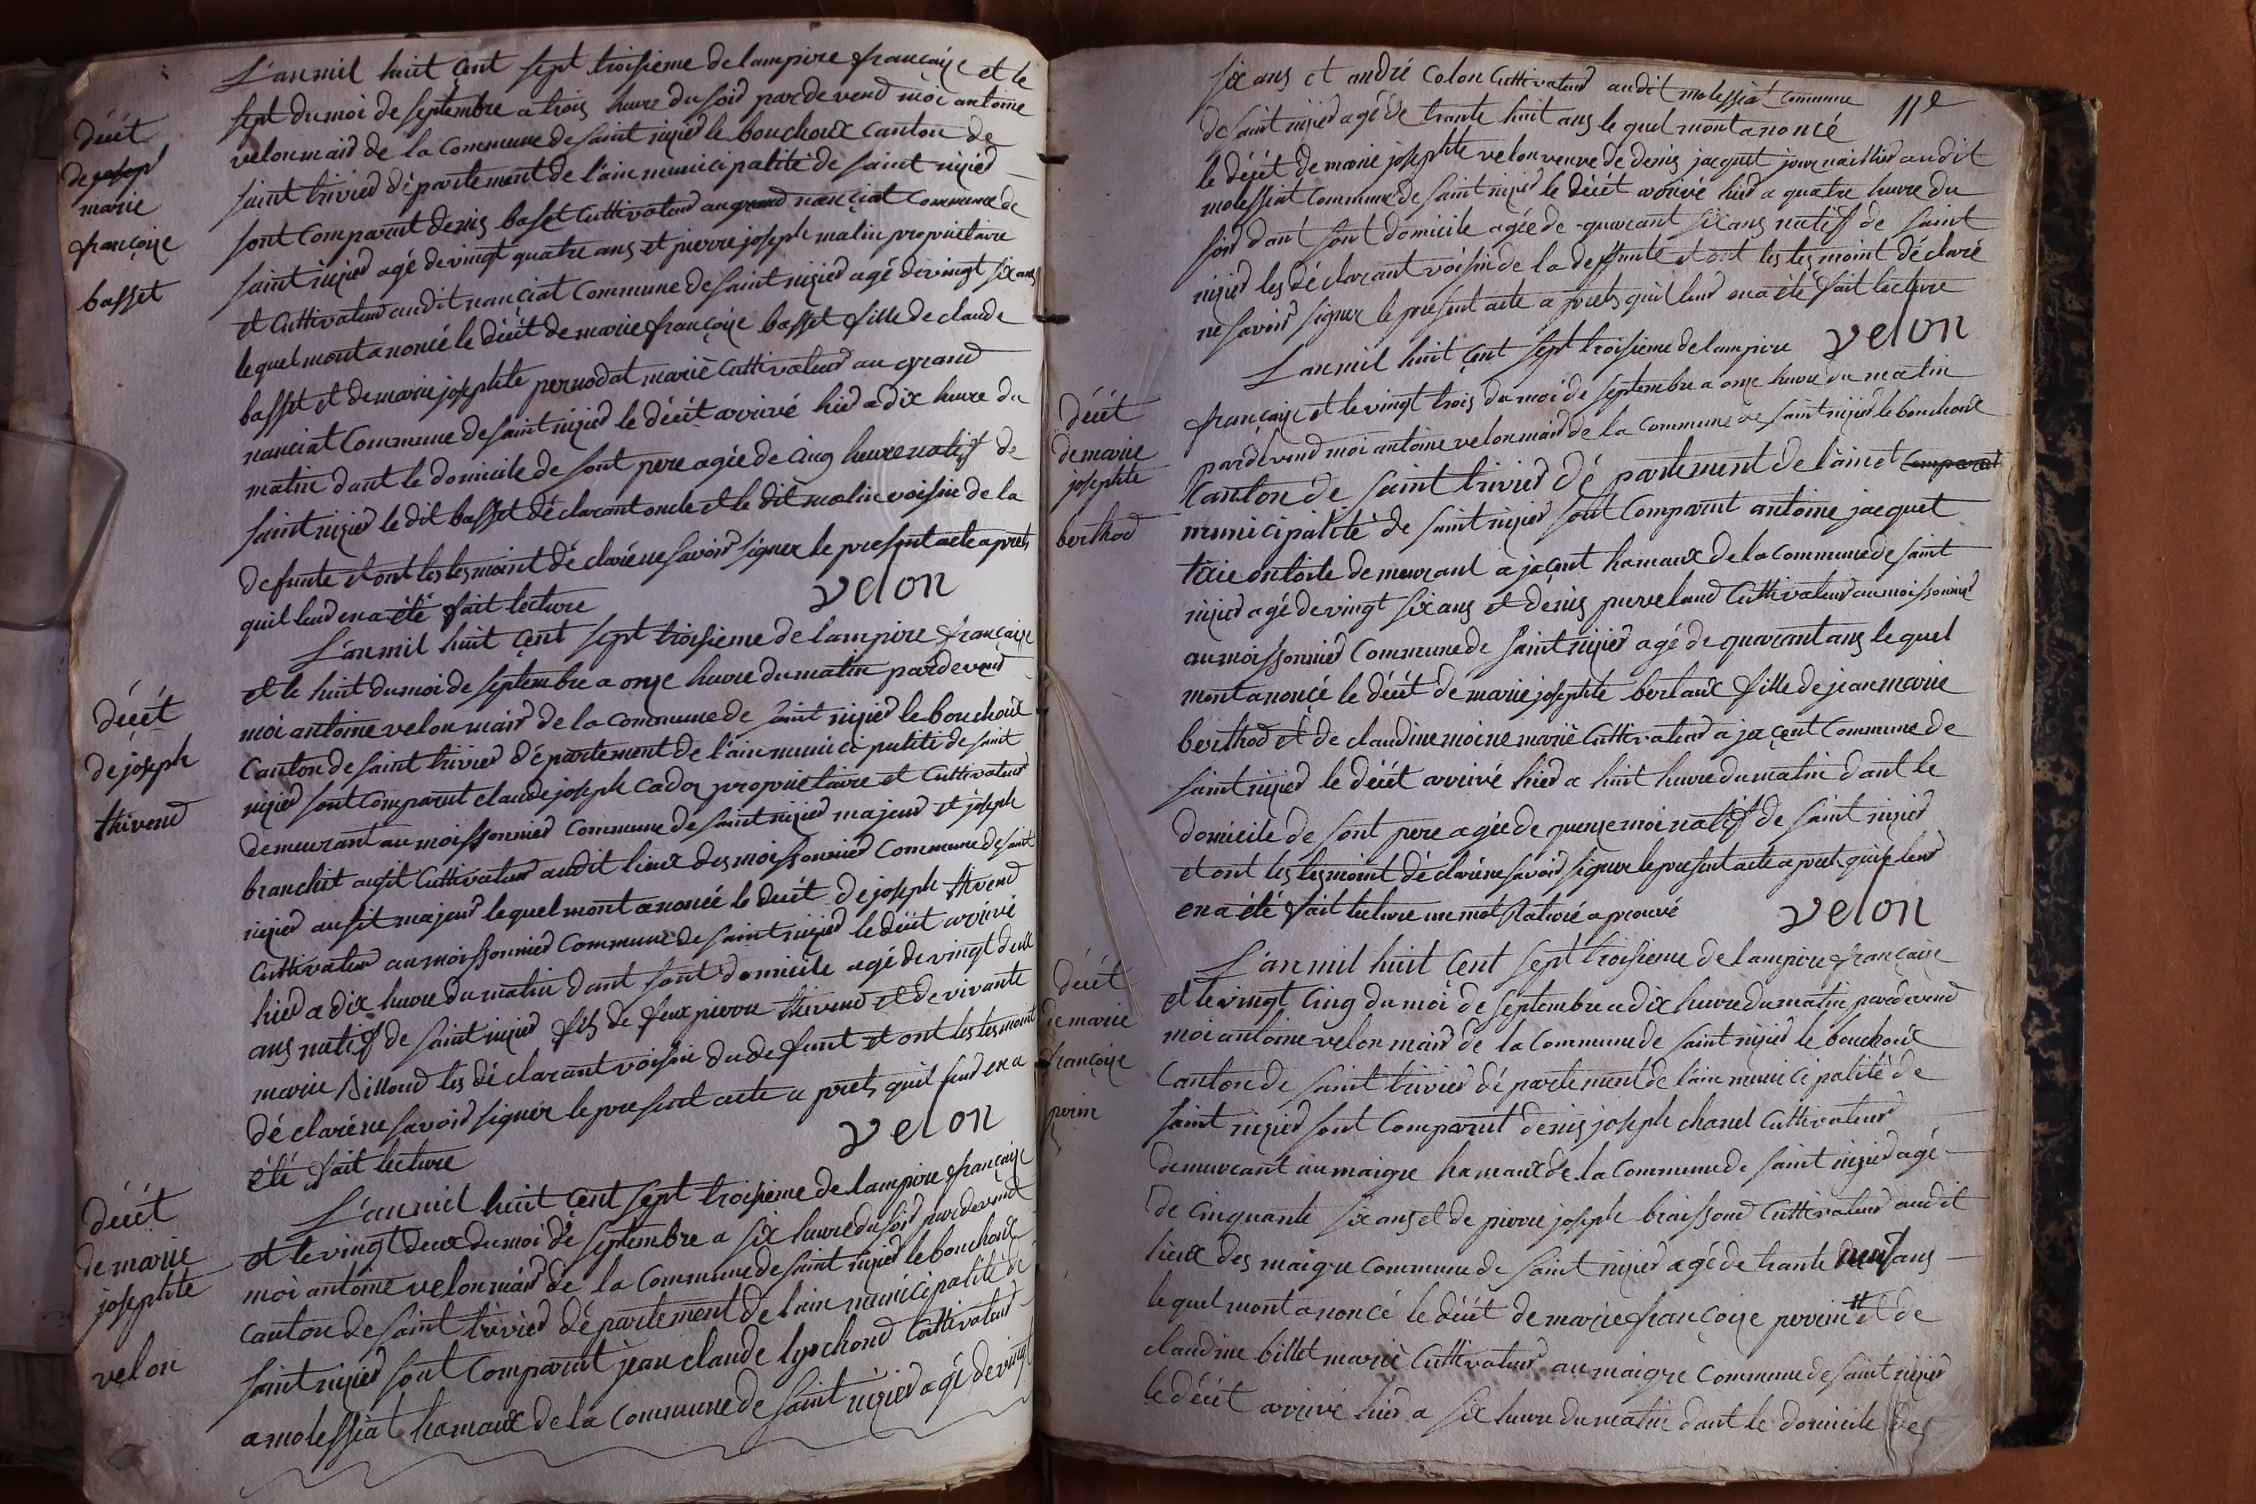 L'an mil huit çent sept troisieme de lampire françaiȝe et le
décét
de joseph
marie
françoiȝe
basset
sept du moi de septembre a trois heure du soir par devend moi antoine
velon maire de la Commune de saint niȝier le bouchoux Canton de
saint trivier département de l'ain municipalité de saint niȝier
sont Comparut denis baset Cultivateur au grand nançiat Commune de
saint niȝier agé de vingt quatre ans et pierre joseph malin proprietaire
et Cultivateur au dit nançiat Commune de saint niȝier agé de vingt six ans
le quel mont anoncé le décét de marie françoiȝe basset fille de claude
basset et de marie josephte pernodat marié Cultivateur au grand
nanciat Commune de saint niȝier le décét arrivé hier a dix heure du
matin dant le domicile de sont pere agée de Cinq heure natif de
saint niȝier le dit basset déclarant oncle et le dit malin voisin de la
defunte et ont les tesmoint déclaré ne savoir signer le present acte a prets
quil leur en a été fait lecture
velon
L'an mil huit çent sept troisieme de lampire françaiȝe
décét
de joseph
thivend
et le huit du moi de septembre a onȝe heure du matin par devend
moi antoine velon maire de la Commune de saint niȝier le bouchoux
Canton de saint trivier département de l'ain municipalité de saint
niȝier sont Comparut claude joseph Cadoȝ proprietaire et Cultivateur
demeurant au moissonnier Commune de saint niȝier majeur et joseph
branchit ausit Cultivateur au dit lieux des moissonnier Commune de saint
niȝier ausit majeur le quel mont anoncé le décét de joseph thivend
Cultivateur au moissonnier Commune de saint niȝier le décét arrivé
hier a dix heure du matin dant sont domicile agé de vingt deux
ans natif de saint niȝier fils de feux pierre thivend et de vivante
marie Billoud les déclarant voisin du defunt et ont les tesmoint
déclaré ne savoir signer le present acte a prets quil leur en a
été fait lecture
velon
L'an mil huit çent sept troisieme de lampire françaiȝe
décét
de marie
josephte
velon
et le vingt deux du moi de septembre a six heure du soir par devend
moi antoine velon maire de la Commune de saint niȝier le bouchoux
canton de saint trivier département de l'ain municipalité de
saint niȝier sont Comparut jean claude lȝochond Cultivateur
a molessiat hamaux de la Commune de saint niȝier agé de vingt
11e
six ans et andré Colon Cultivateur au dit molessiat Commune
de saint niȝier agé de trante huit ans le quel mont anoncé
le décét de marie josephte velon veuve de denis jacquet journaillier au dit
molessiat Commune de saint niȝier le décét arrivé hier a quatre heure du
soir dant sont domicile agée de quarant six ans natif de saint
niȝier les déclarant voisin de la deffunte et ont les tesmoint déclaré
ne savoir signer le present acte a prets quil leur en a été fait lecture
velon
L'an mil huit çent sept troisieme de lampire
décét
de marie
josephte
berthod
françaiȝe et le vingt trois du moi de septembre a onȝe heure du matin
par devend moi antoine velon maire de la Commune de saint niȝier le bouchoux
Canton de saint trivier département de l'ain et Comparut
municipalité de saint niȝier sont Comparut antoine jacquet
tixie en toile demeurant a jaçent hamaux de la Commune de saint
niȝier agé de vingt six ans et denis perveland Cultivateur au moissonnier
au moissonnier Commune de saint niȝier agé de quarant ans le quel
mont anonçé le décét de marie josephte bertaux fille de jean marie
berthod et de claudine moine marié Cultivateur a jaçent Commune de
saint niȝier le décét arrivé hier a huit heure du matin dant le
domicile de sont pere agée de quenȝe moi natif de saint niȝier
et ont les tesmoint déclaré ne savoir signer le present acte a prets quil leur
en a été fait lecture un mot rature aprouvé
velon
L'an mil huit çent sept troisieme de lampire françaiȝe
décét
de marie
françoiȝe
perin
et le vingt Cinq du moi de septembre a dix heure du matin par devend
moi antoine velon maire de la Commune de saint niȝier le bouchoux
Canton de saint trivier département de l'ain municipalité de
saint niȝier sont Comparut denis joseph chanel Cultivateur
demeurant au maigre hamaux de la Commune de saint niȝier agé
de Cinquante six ans et de pierre joseph braissoud Cultivateur au dit
lieux des maigre Commune de saint niȝier agé de trante neuf ans
le quel mont anoncé le décét de marie françoiȝe perin et de
claudine billet marié Cultivateur au maigre Commune de saint niȝier
le décét arrivé hier a six heure du matin dant le domicile des